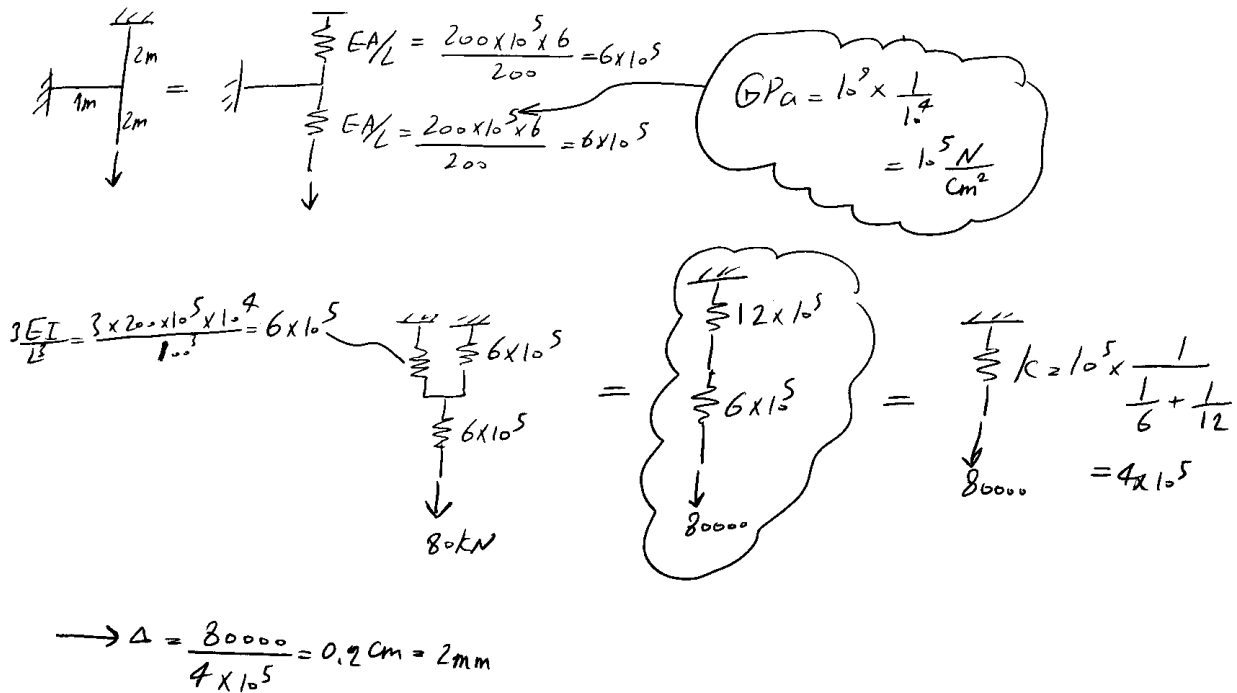 2m
1m
2m
=
EA/L = 200×10⁵×6 / 200 = 6×10⁵
EA/L = 200×10⁵×6 / 200 = 6×10⁵
GPa = 10⁹ × 1/10⁴
= 10⁵ N/cm²
3EI/L³ = 3×200×10⁵×10⁴ / 100³ = 6×10⁵
6×10⁵
6×10⁵
80kN
=
12×10⁵
6×10⁵
80000
=
k = 10⁵ × 1 / (1/6 + 1/12)
= 4×10⁵
80000
→ Δ = 80000 / 4×10⁵ = 0.2 cm = 2mm